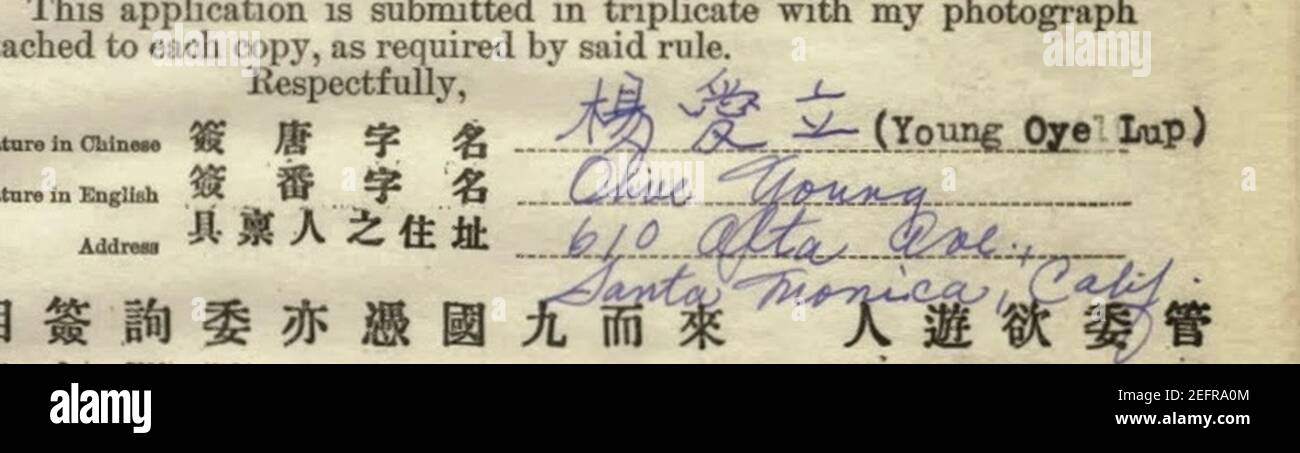 This application is submitted in triplicate with my photograph
tached to each copy, as required by said rule.
Respectfully,
ture in Chinese 簽唐字名 楊愛立 (Young Oyel Lup)
ture in English 簽番字名 Olive Young
Address 具稟人之住址 610 Alta Ave.,
Santa Monica, Calif.
簽詢委亦憑國九而來 人遊欲委管
alamy
Image ID: 2EFRA0M
www.alamy.com